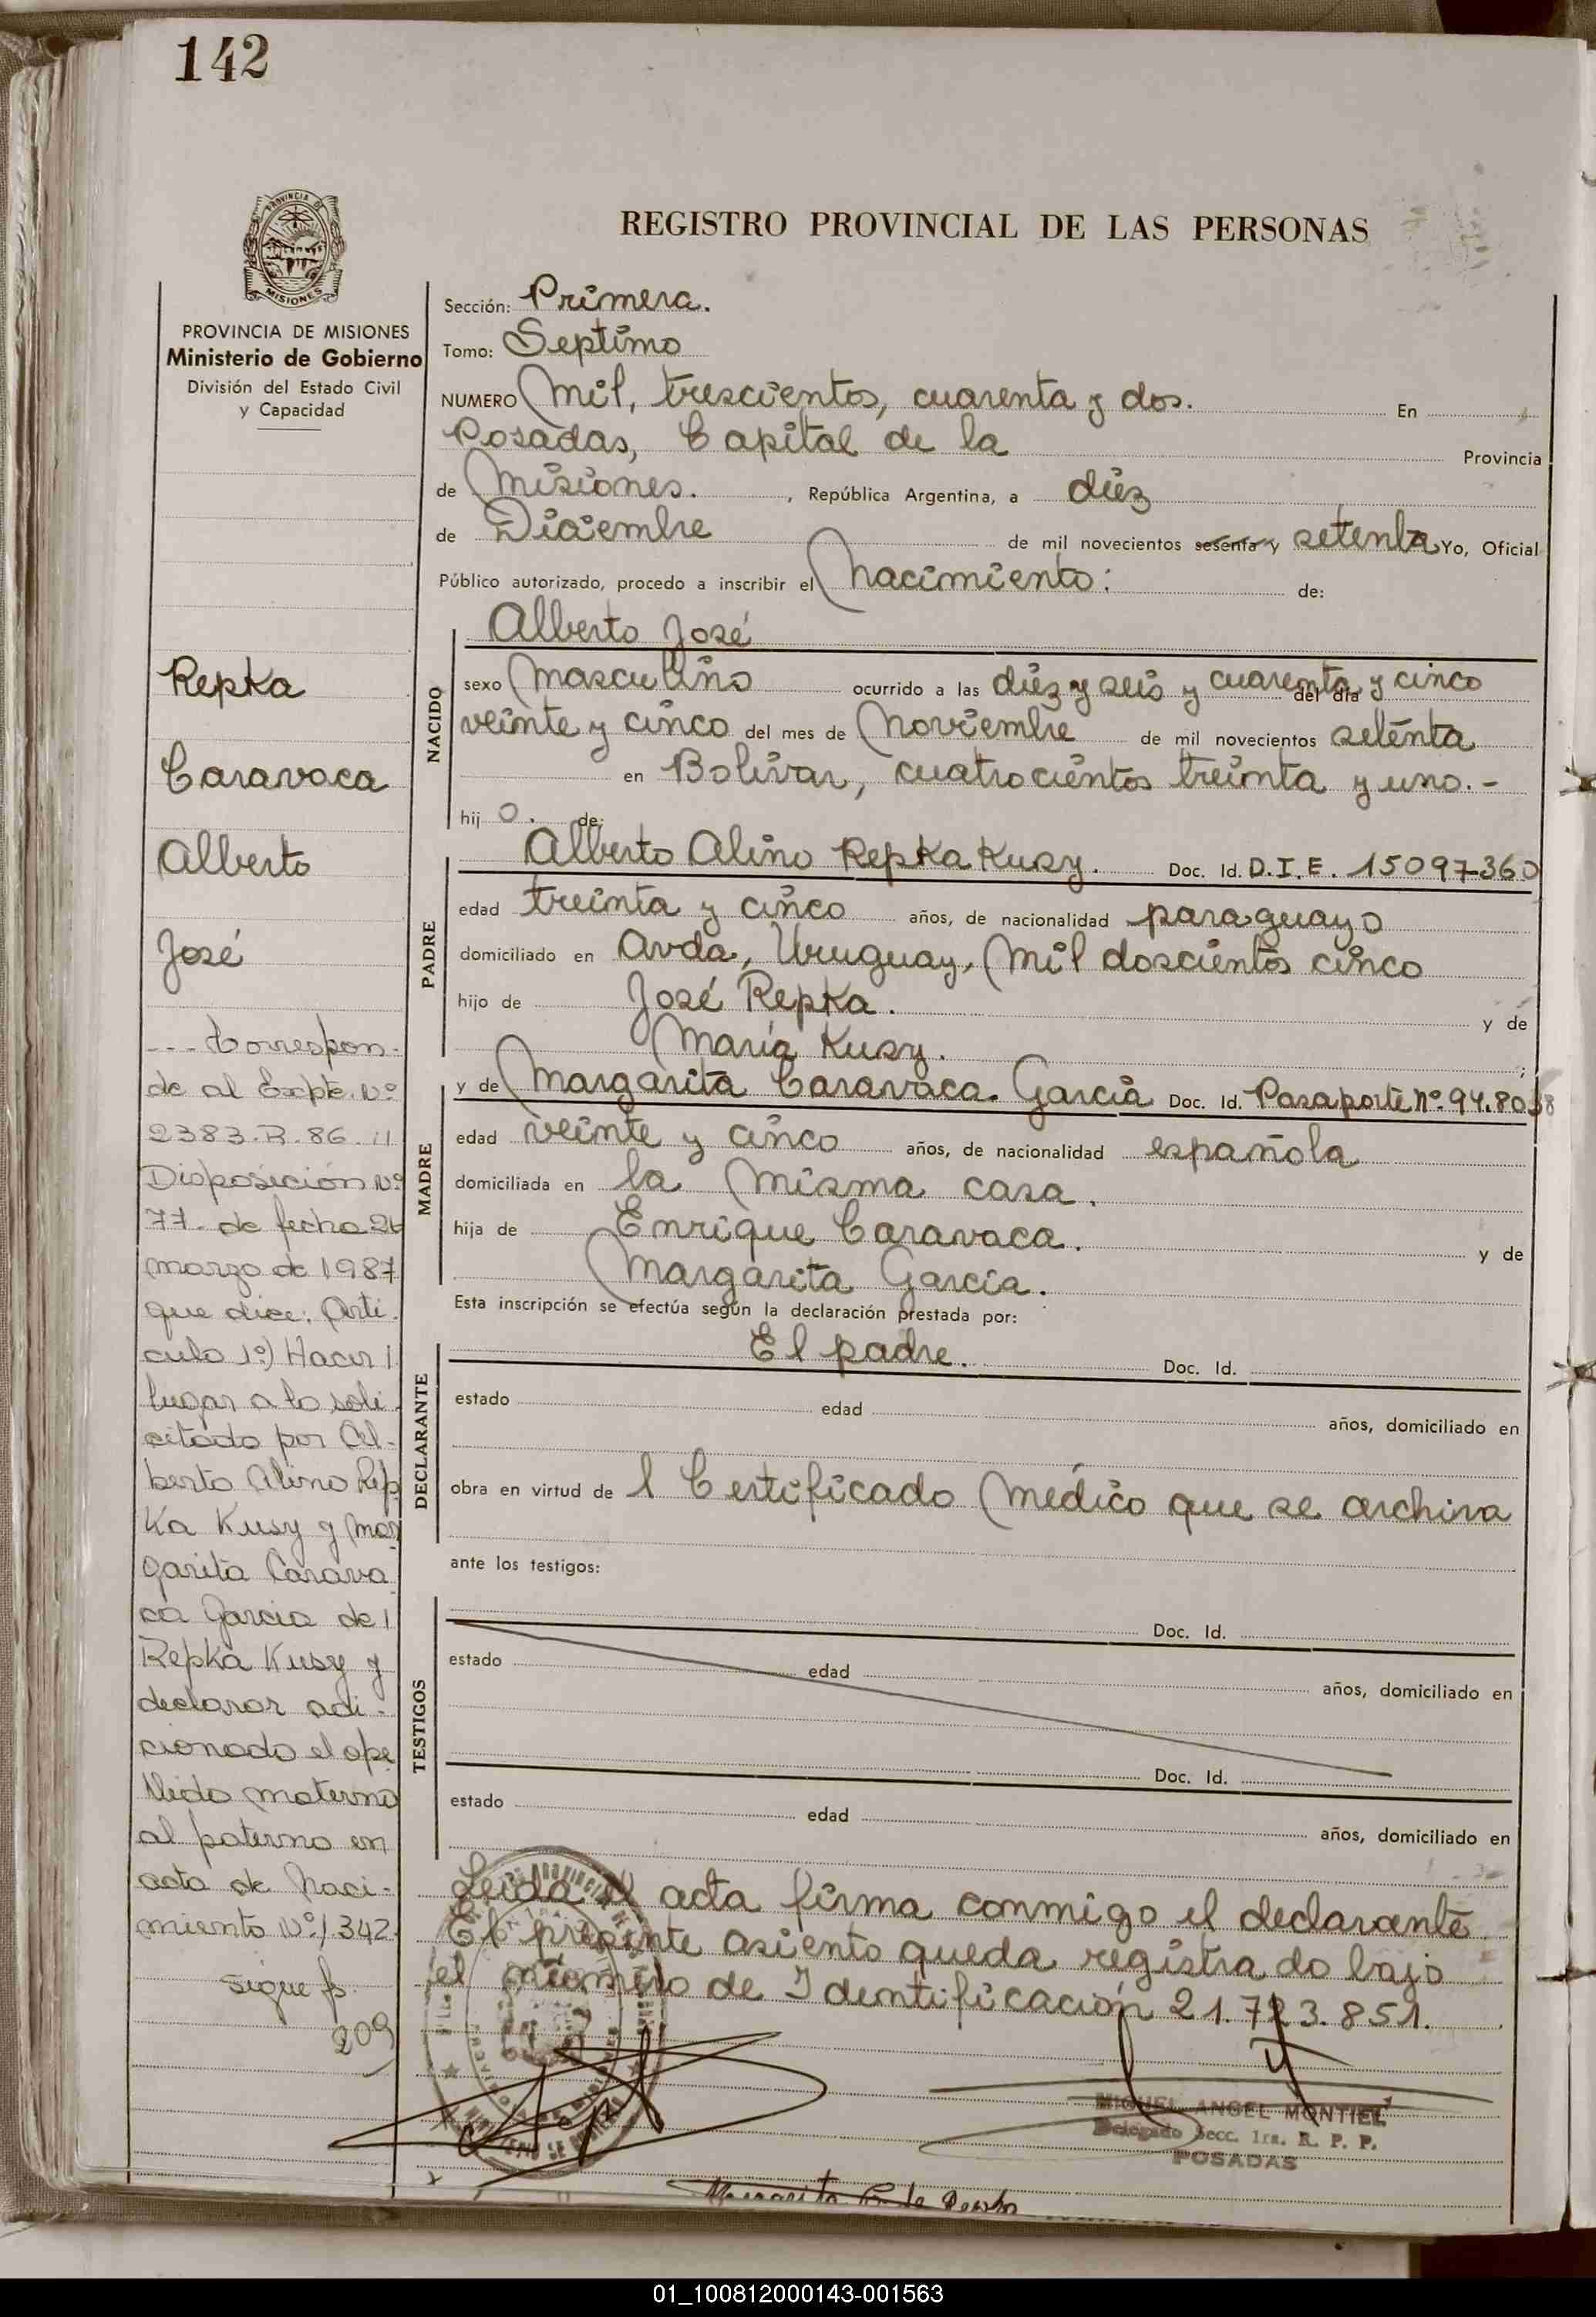 142
PROVINCIA DE
MISIONES
PROVINCIA DE MISIONES
Ministerio de Gobierno
División del Estado Civil
y Capacidad
Repka
Caravaca
Alberto
José
--- Correspon-
de al Expte. Nº
2383.R.86.
Disposición Nº
77- de fecha 26
marzo de 1987
que dice: Arti-
culo 1º) Hacer
lugar a lo soli
citado por Al-
berto Alino Rep
Ka Kusy y Mar
garita Carava
ca Garcia de
Repka Kusy y
declarar adi-
cionado el ape
llido materno
al paterno en
acta de Naci-
miento Nº 1342.
sigue f.
209
REGISTRO PROVINCIAL DE LAS PERSONAS
Sección: Primera.
Tomo: Septimo
NUMERO Mil, trescientos, cuarenta y dos. En
Posadas, Capital de la Provincia
de Misiones. , República Argentina, a diez
de Diciembre de mil novecientos sesenta y setenta Yo, Oficial
Público autorizado, procedo a inscribir el Nacimiento: de:
NACIDO
Alberto José
sexo Masculino ocurrido a las diez y seis y cuarenta y cinco del día
veinte y cinco del mes de Noviembre de mil novecientos setenta
en Bolívar, cuatrocientos treinta y uno.-
hij o. de:
PADRE
Alberto Alino Repka Kusy. Doc. Id. D.I.E. 15097360
edad treinta y cinco años, de nacionalidad paraguayo
domiciliado en Avda, Uruguay, Mil doscientos cinco
hijo de José Repka. y de
María Kusy. ;
MADRE
y de Margarita Caravaca. García Doc. Id. Pasaporte Nº. 94.8038
edad veinte y cinco años, de nacionalidad española
domiciliada en la Misma casa.
hija de Enrique Caravaca. y de
Margarita García.
Esta inscripción se efectúa según la declaración prestada por:
DECLARANTE
El padre. Doc. Id.
estado edad años, domiciliado en
obra en virtud de l Certificado Médico que se archiva
ante los testigos:
TESTIGOS
Doc. Id.
estado edad años, domiciliado en
Doc. Id.
estado edad años, domiciliado en
Leida el acta firma conmigo el declarante
El presente asiento queda registrado bajo
el número de Identificación 21.723.851.
MIGUEL ANGEL MONTIEL
Delegado Secc. 1ra. R. P. P.
POSADAS
Margarita C. de Repka
01_100812000143-001563